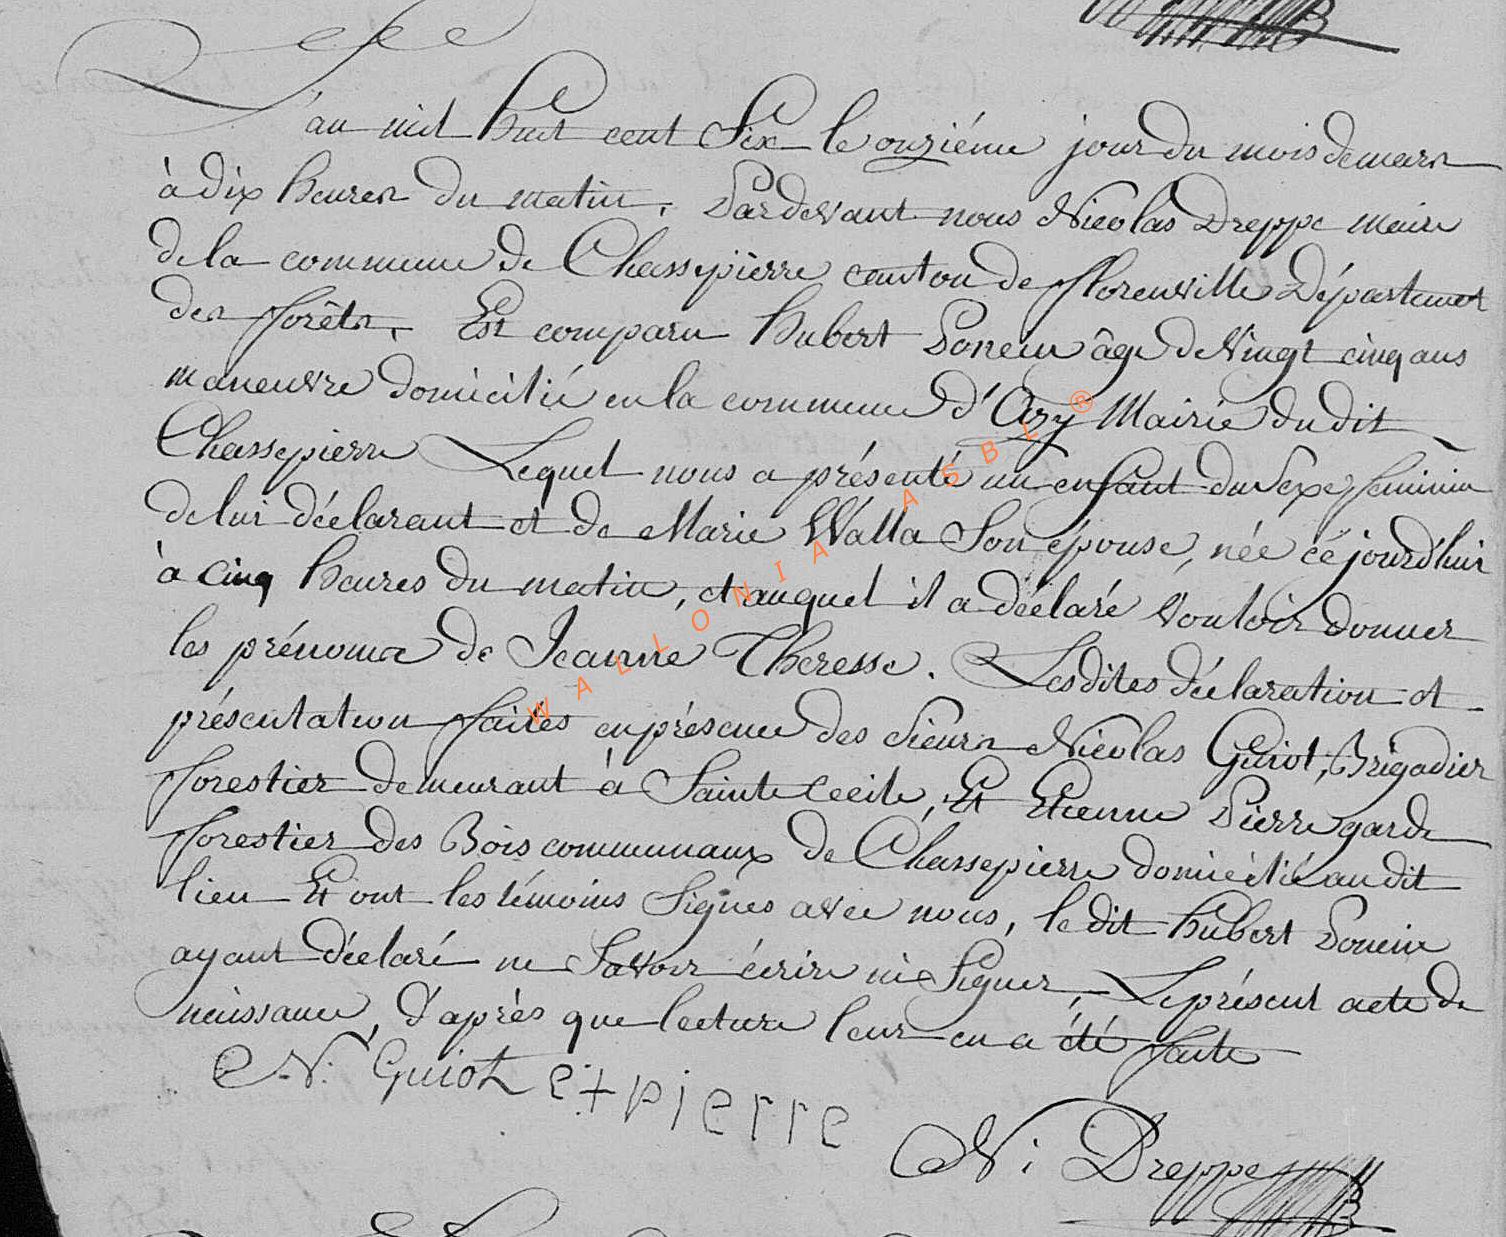 L'an mil huit cent Six le onziéme jour du mois de mars
à dix heures du matin, Pardevant nous Nicolas Dreppe maire
de la commune de Chassepierre canton de florenville Département
des forêts, Est comparu hubert Poncin âgé de Vingt cinq ans
maneuvre domicilié en la commune d'Azy Mairie du dit
Chassepierre Lequel nous a présenté un enfant du Sexe feminin
de lui déclarant et de Marie Walla Son épouse, née cejourd'hui
à cinq heures du matin, et auquel il a déclaré Vouloir donner
les prénoms de Jeanne Theresse. Lesdites déclaration et
présentation faites en présence des Sieurs Nicolas Guiot, Brigadier
forestier demeurant à Sainte Cecile, Et Etienne Pierre garde
forestier des Bois communaux de Chassepierre domicilié audit
lieu Et ont les témoins Signés avec nous, le dit hubert Poncin
ayant déclaré ne Savoir écrire ni Signer, Le présent acte de
naissance, d'après que lecture leur en a été faite
N. Guiot e+pierre
N: Dreppe
WALLONIA ASBL ®